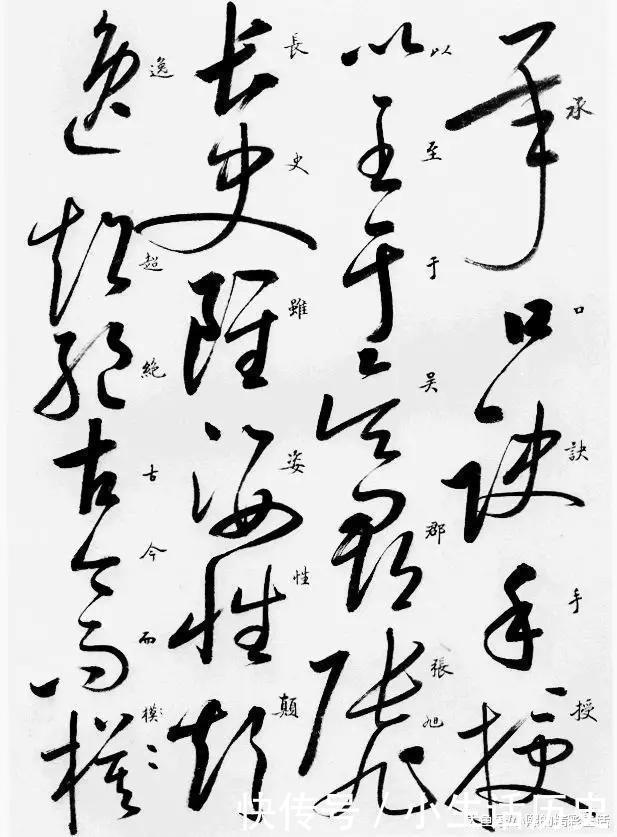 承口訣手授
以至于吴郡張旭
長史雖姿性顛
逸超絶古今而模〻
快传号/小生活历史